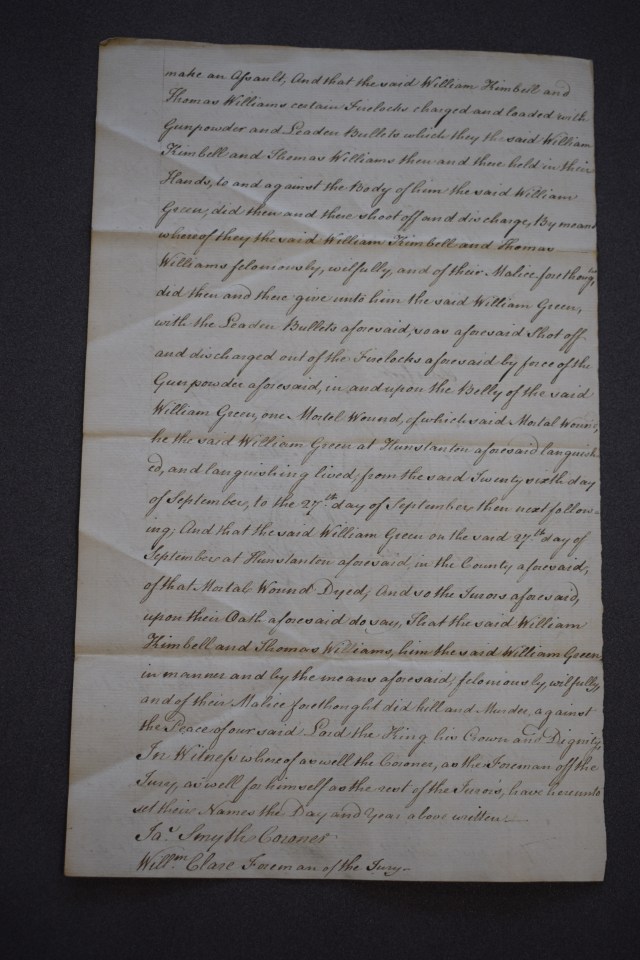 make an Assault, And that the said William Kimbell and
Thomas Williams certain Firelocks charged and loaded with
Gunpowder and Leaden Bullets which they the said William
Kimbell and Thomas Williams then and there held in their
Hands, to and against the Body of him the said William
Green, did then and there shoot off and discharge, By means
whereof they the said William Kimbell and Thomas
Williams feloniously, wilfully, and of their Malice forethought,
did then and there give unto him the said William Green,
with the Leaden Bullets aforesaid, so as aforesaid Shot off
and discharged out of the Firelocks aforesaid by force of the
Gunpowder aforesaid, in and upon the Belly of the said
William Green, one Mortal Wound, of which said Mortal Wound,
he the said William Green at Hunstanton aforesaid languish
ed, and languishing lived, from the said Twenty sixth day
of September, to the 27th. day of September then next follow=
ing; And that the said William Green on the said 27th day of
September at Hunstanton aforesaid, in the County aforesaid,
of that Mortal Wound Dyed; And so the Jurors aforesaid,
upon their Oath aforesaid do say, That the said William
Kimbell and Thomas Williams, him the said William Green
in manner and by the means aforesaid, feloniously, wilfully,
and of their Malice forethought did kill and Murder, against
the Peace of our said Lord the King his Crown and Dignity.
In Witness whereof as well the Coroner, as the Foreman off the
Jury, as well for himself as the rest of the Jurors, have hereunto
set their Names the Day and Year above written.
Jas. Smyth Coroner
Willm. Clare Foreman of the Jury.